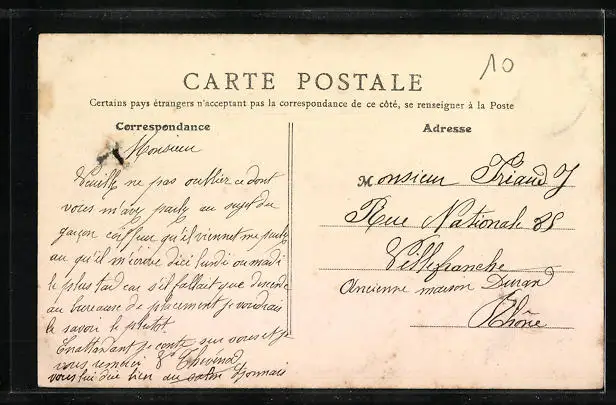 10
CARTE POSTALE
Certains pays étrangers n'acceptant pas la correspondance de ce côté, se renseigner à la Poste
Correspondance
Adresse
Monsieur
Veuille ne pas oublier ce dont
vous m'ave parle au sujet du
garçon coiffeur qu'il viennet me parle
au qu'il m'écrive dici lundi ou madi
le plus tard car s'il fallait que descende
au bureause de placement je voudrais
le savoir le plutot
Enattendant je conte sur vous et je
vous remerci
vous lui dire bien au salon
Monsieur Friand J
Rue Nationale 85
Villefranche
Ancienne maison Durand
Rhône